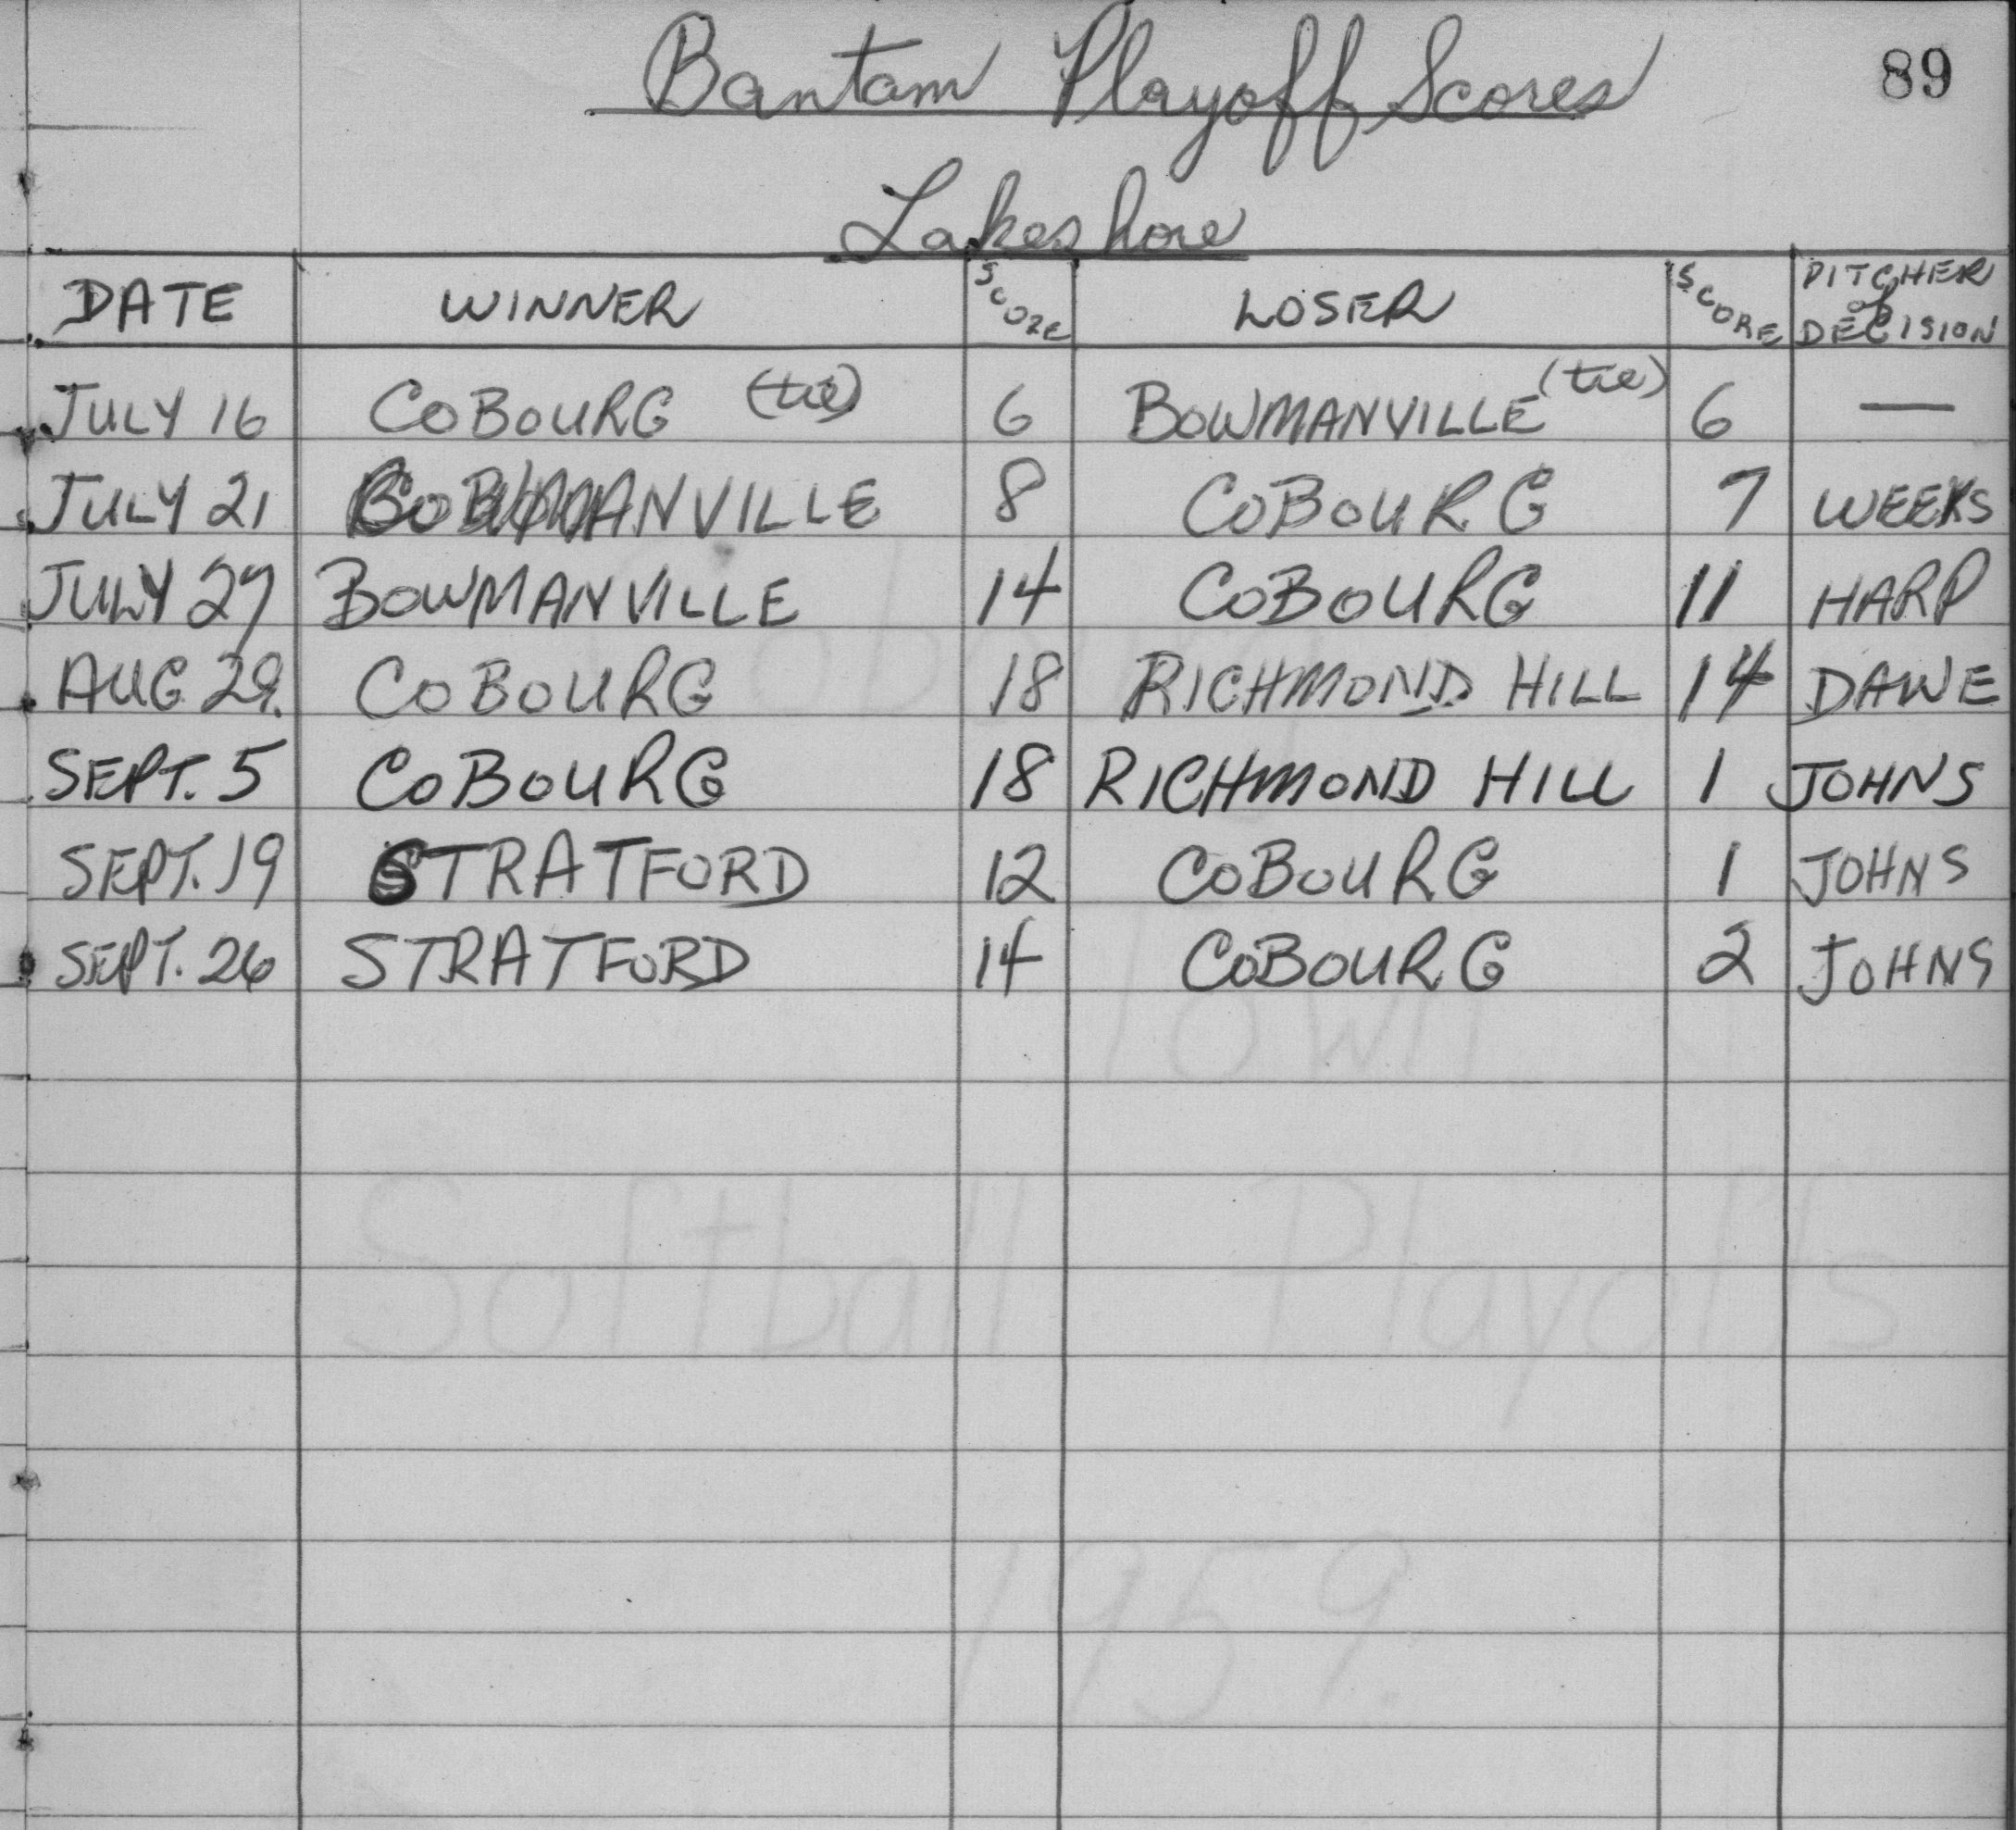 Bantam Playoff Scores 89
Lakeshore
DATE WINNER SCORE LOSER SCORE PITCHER of DECISION
JULY 16 COBOURG (tie) 6 BOWMANVILLE (tie) 6 —
JULY 21 BOWMANVILLE 8 COBOURG 7 WEEKS
JULY 27 BOWMANVILLE 14 COBOURG 11 HARP
AUG 29. COBOURG 18 RICHMOND HILL 14 DAWE
SEPT. 5 COBOURG 18 RICHMOND HILL 1 JOHNS
SEPT. 19 STRATFORD 12 COBOURG 1 JOHNS
SEPT. 26 STRATFORD 14 COBOURG 2 JOHNS
Cobourg
Town
Softball Playoffs
1959.